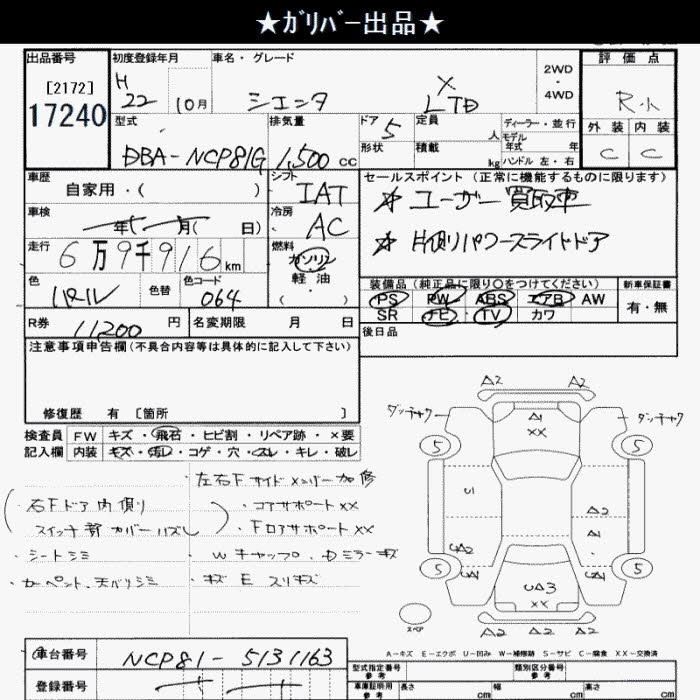 ★ガリバー出品★
出品番号 初度登録年月 車名・グレード 2WD・4WD 評価点
[2172] H 22 10月 シエンタ X LTD R.小
17240
型式 排気量 ドア 5 定員 人 ディーラー・並行 外装 内装
DBA-NCP81G 1,500 cc 形状 積載 kg モデル年式 年 ハンドル 左・右 C C
車歴 自家用・( ) シフト IAT セールスポイント(正常に機能するものに限ります)
車検 年 月( 日) 冷房 AC ☆ ユーザー買取車
走行 6万9千916km 燃料 ガソリン 軽油 ・( ) ☆ 片側パワースライドドア
色 パール 色替 色コード 064 装備品(純正品に限り○をつけてください) 新車保証書
PS PW ABS エアB AW 有・無
SR ナビ TV カワ
R券 11200 円 名変期限 月 日 後日品
注意事項申告欄(不具合内容等は具体的に記入して下さい)
修復歴 有 [箇所 ]
検査員 FW キズ・飛石・ヒビ割・リペア跡・×要
記入欄 内装 キズ・汚レ・コゲ・穴・スレ・キレ・破レ
・左右Fサイドメンバー加修
(右Fドア内側リ ・コアサポートXX
スイッチ部カバーハズレ) ・FロアサポートXX
・シートシミ ・Wキャップ、Dミラーキズ
・カーペント、天バリシミ ・キズE スリキズ
A2 A2
ダンチャク A1 XX ダンチャク
5 5
U1 A2
A1
UA2
5 UA1 UA1 5
UA3
XX
スペア A2 A2 A2
A-キズ E-エクボ U-凹み W-補修跡 S-サビ C-腐食 XX-交換済
車台番号 NCP81-5131163
登録番号
型式指定番号 参考 類別区分番号 参考
車庫証明用 参考 長さ cm 幅 cm 高さ cm